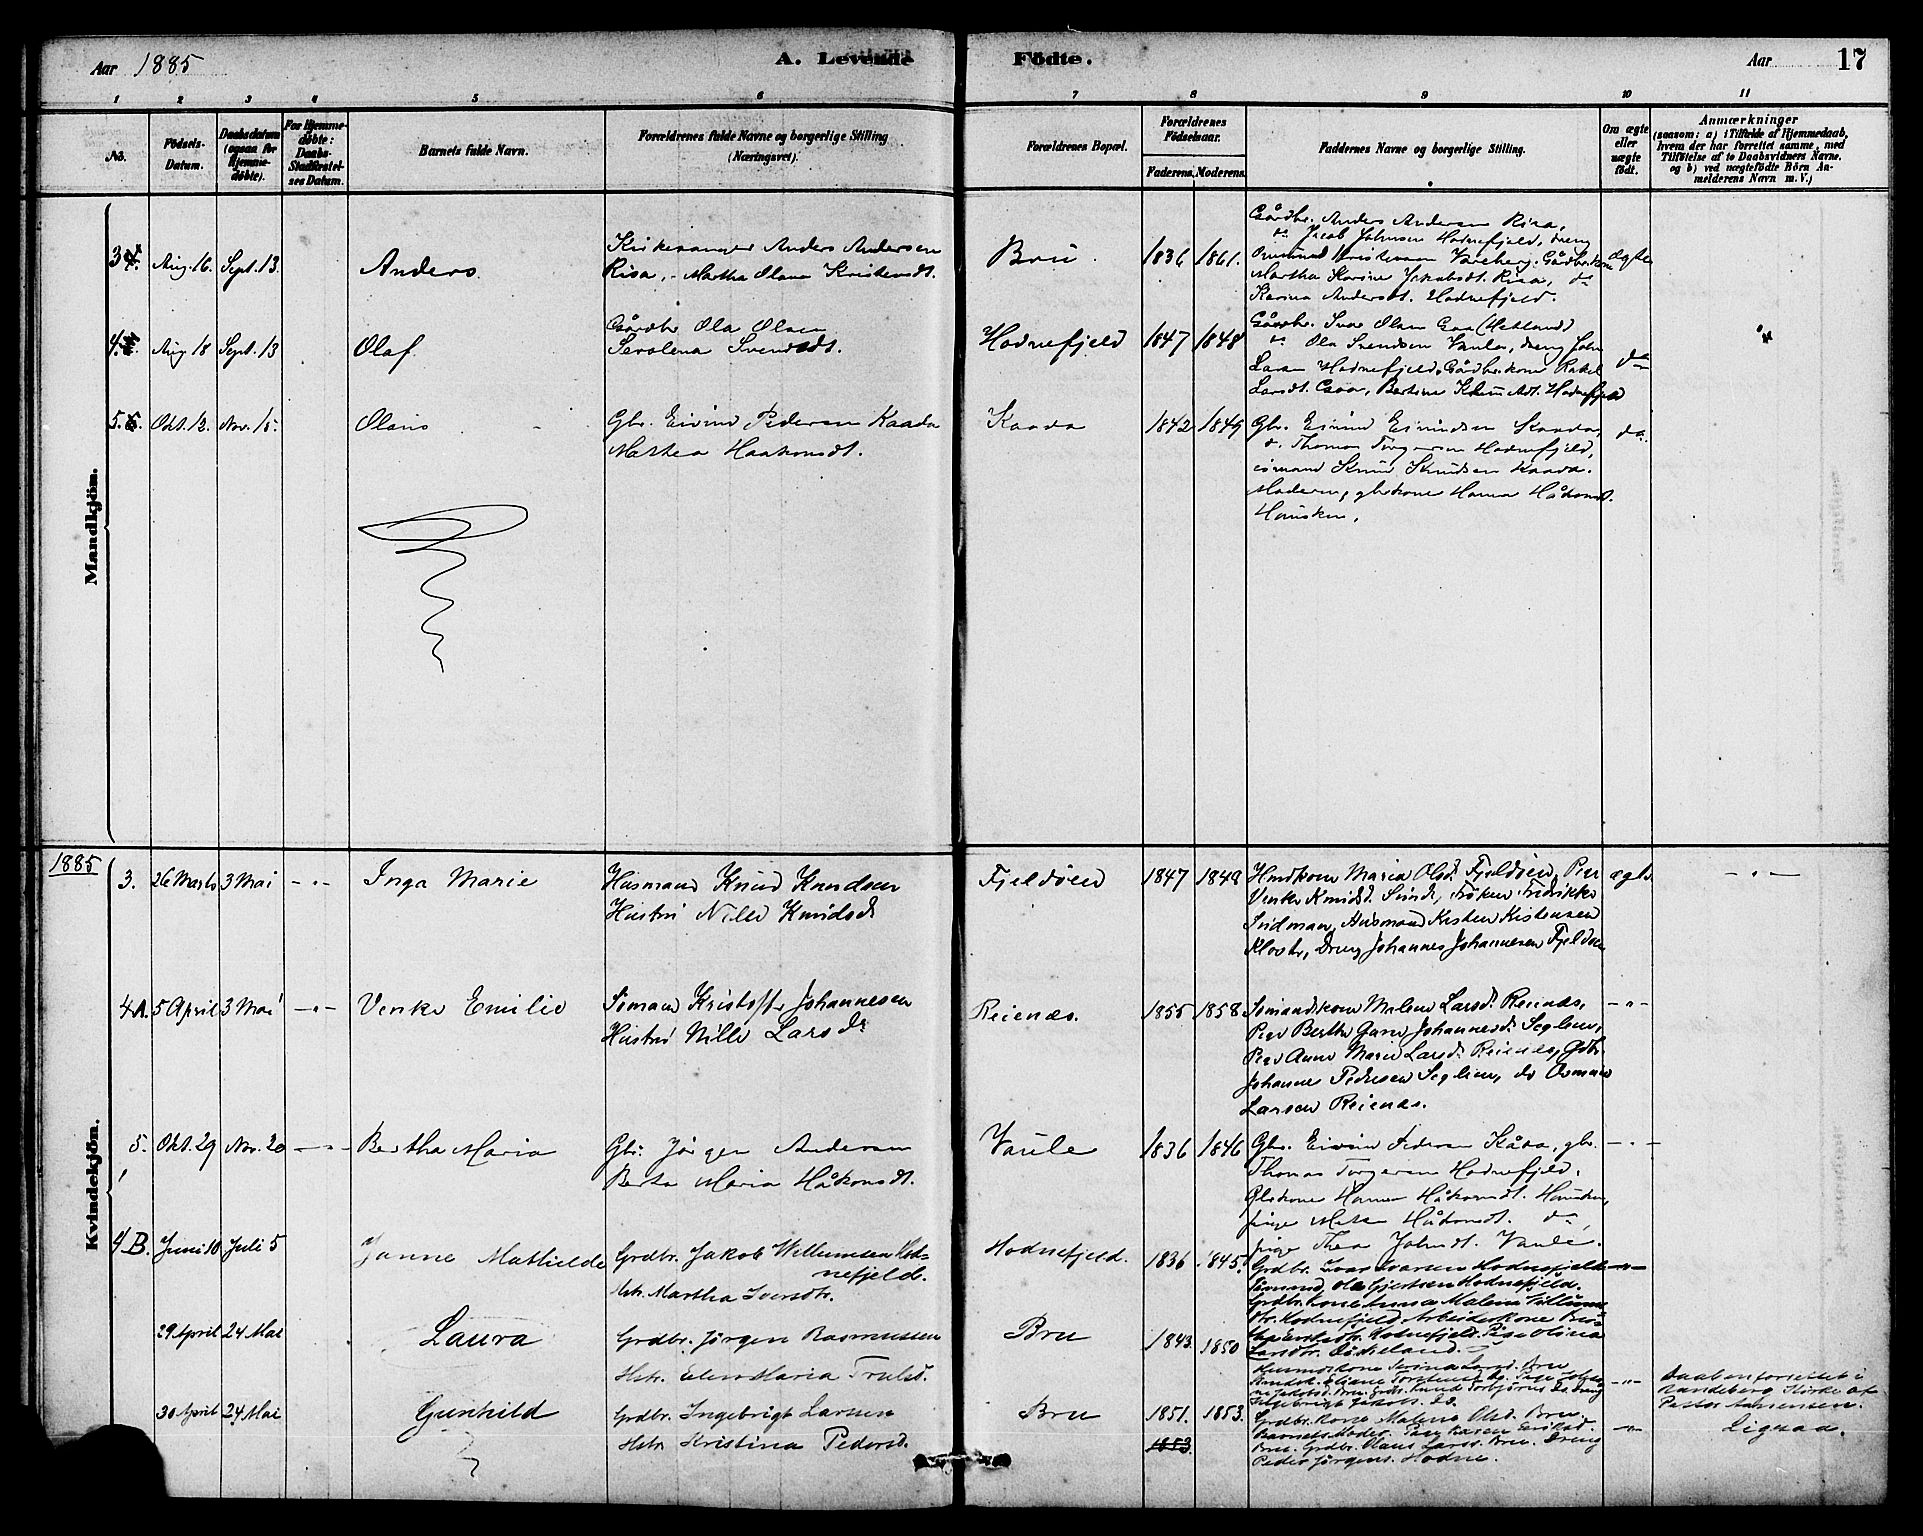 Aar 1885
A. Levende Födte.
Aar 17
1 2 3 4 5 6 7 8 9 10 11
No.
Födsels-Datum.
Daabsdatum (ogsaa for Hjemme-döbte).
For Hjemme-döbte: Daabs-Stadfæstel-ses Datum.
Barnets fulde Navn.
Forældrenes fulde Navne og borgerlige Stilling (Næringsvei).
Forældrenes Bopæl.
Forældrenes Födselsaar.
Faderens. Moderens.
Faddernes Navne og borgerlige Stilling.
Om ægte eller uægte födt.
Anmærkninger
(saasom: a) i Tilfælde af Hjemmedaab, hvem der har forrettet samme, med Tilföielse af to Daabsvidners Navne, og b) ved uægtefödte Börn An-melderens Navn m. V.)
Mandkjön.
34. Aug. 16. Sept. 13. Anders.
Kirkesanger Anders Andersen
Risa, Martha Olana
Bru 1836 1861.
Gårdbr. Anders Andersen Risa,
do Jacob Johnsen Hodnefjeld, dreng
Vareberg. Gårdbr.kone
Martha Karine Jakobsdt. Risa, do
Karina Andersdt. Hodnefjeld.
ægte
4. Aug 18 Sept. 13 Olaf
Gårdbr. Ola Olsen
Serolena Svendsdt.
Hodnefjeld 1847 1848
Gårdbr. Ivar Olsen Gaa (Hetland)
do Ola Svendsen Vaula, dreng John
Larsen Hodnefjeld, Gårdbr.kone Rakel
Larsdt. Gaa, Bertine Hodnefjeld
do
5. Okt. 12. Nov. 15. Olaus
Gbr. Eivind Pedersen Kaada
Marthea Haakonsdt.
Kaada 1842 1849
Gbr. Eivind Eivindsen Kaada,
d. Thomas Torgersen Hodnefjeld,
sömand Knud Knudsen Kaada.
Moderen, gbrkone Hanna Håkonsdt.
Hausken.
do
1885
Kvindekjön.
3. 26 Marts 3 Mai - " - Inga Marie
Husmand Knud Knudsen
Hustru Nille Knudsdt
Fjeldöen 1847 1849
Husmdkone Maria Olsd. Fjeldöen, Pige
Venke Knudsd. Sunde, Fröken Fredrikke
Sridman, Husmand Kristen Kistensen
Kloster, Dreng Johannes Johannesen Fjeldöen
ægte
- " -
4A. 5 April 3 Mai - " - Venke Emilie
Sömand Kristoffer Johannesen
Hustru Nille Larsdt
Reienæs. 1855 1858
Sömandskone Malene Larsd. Reienæs,
Pige Berthe Gurine Johannesd. Seglem,
Pige Anne Marie Larsd. Reienæs, Gdb.
Johannes Pedersen Seglem, do Osmund
Larsen Reienæs.
- " -
5. Okt. 29 Nov. 20 - " - Bertha Maria
Gbr. Jörgen Andersen
Berta Maria Håkonsdt.
Vaule 1836 1846
Gbr. Eivin Pedersen Kåda, gbr.
Thomas Torgersen Hodnefjeld.
Gbrkone Hanna Håkonsdt. Hausken,
pige Håkonsdt. do,
pige Thea Johnsdt. Vaule.
- " -
4B. Juni 10 Juli 5 Janne Mathilde
Grdbr. Jakob Willumsen Hod-
nefjeld.
Hstr. Martha Iversdtr.
Hodnefjeld. 1836 1845.
Grdbr. Ivar Ivarsen Hodnefjeld
Sömand, Ole Gjertsen Hodnefjeld.
Grdbr. Kone Anna Malena Villums
dtr. Hodnefjeld. Arbeiderkone
Hodnefjeld. Pige Olina
Larsdtr.
- " -
29 April 24 Mai Laura
Grdbr. Jörgen Rasmussen
Hstr. Elen Maria Trulsd.
Bru 1843. 1850
Husmdskone Serina Larsd. Bru
Daaben forrettet i
Randeberg Kirke af
Pastor
30 April 24 Mai Gunhild
Grdbr. Ingebrigt Larsen
Hstr. Kristina Pedersd.
Bru 1851. 1853.
1853.
Grdbr. Kone Malena Olsd. Bru.
Barnets Moder.
Bru. Grdbr. Olaus Larss. Bru. Dreng
Peder Jörgens. Hodne.
- " -
Ligesaa.